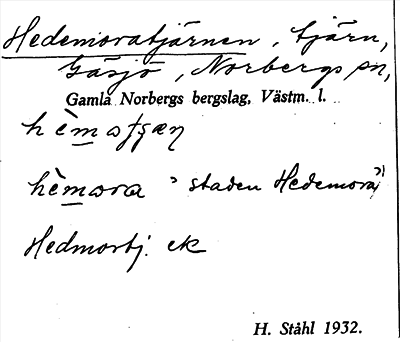 Hedemoratjärnen, tjärn,
Gäsjö, Norbergs sn,
Gamla Norbergs bergslag, Västm. l.
hèmora "staden Hedemora"
Hedmortj. ek
H. Ståhl 1932.